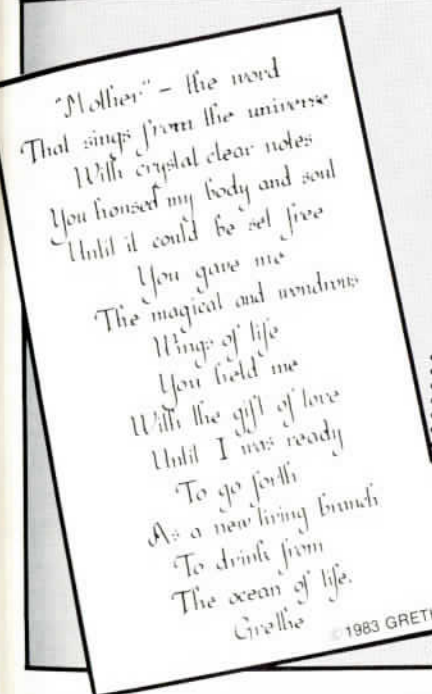 "Mother" - the word
That sings from the universe
With crystal clear notes
You housed my body and soul
Until it could be set free
You gave me
The magical and wondrous
Wings of life
You held me
With the gift of love
Until I was ready
To go forth
As a new living branch
To drink from
The ocean of life.
Grethe
©1983 GRETH